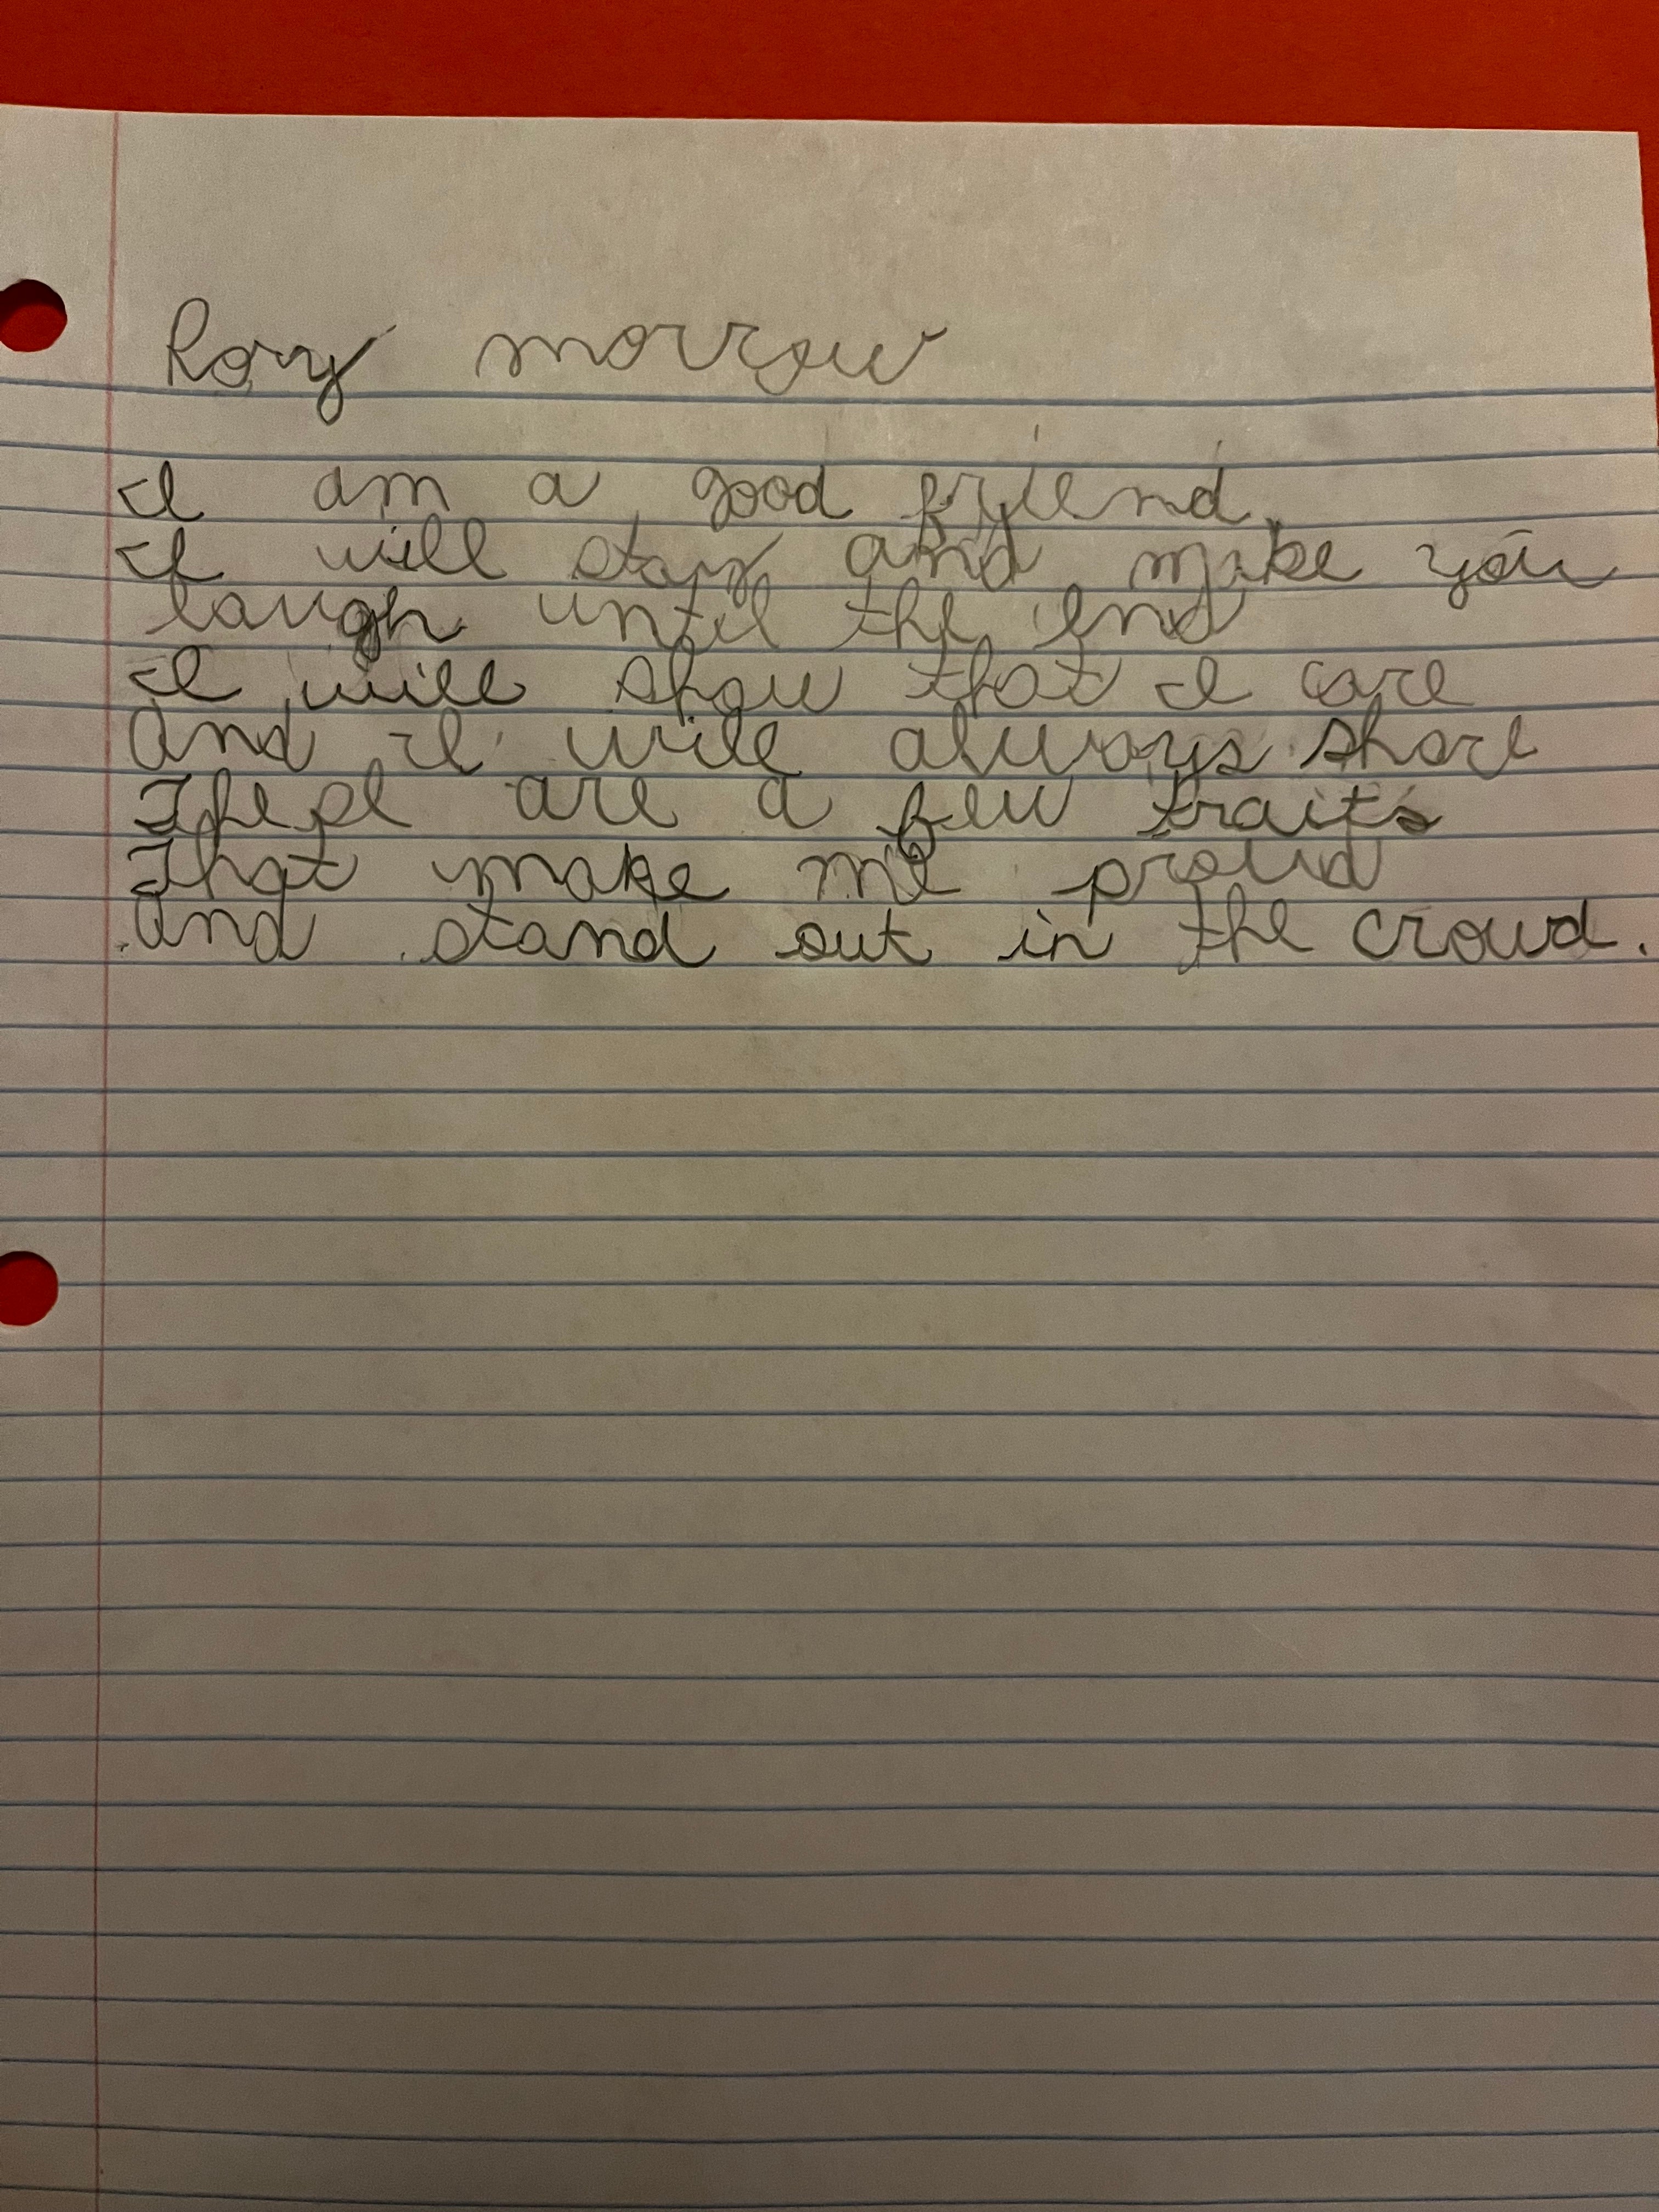 Rory morrow
I am a good friend,
I will stay and make you
laugh until the end
I will show that I care
And I will always share
These are a few traits
That make me proud
And stand out in the croud.